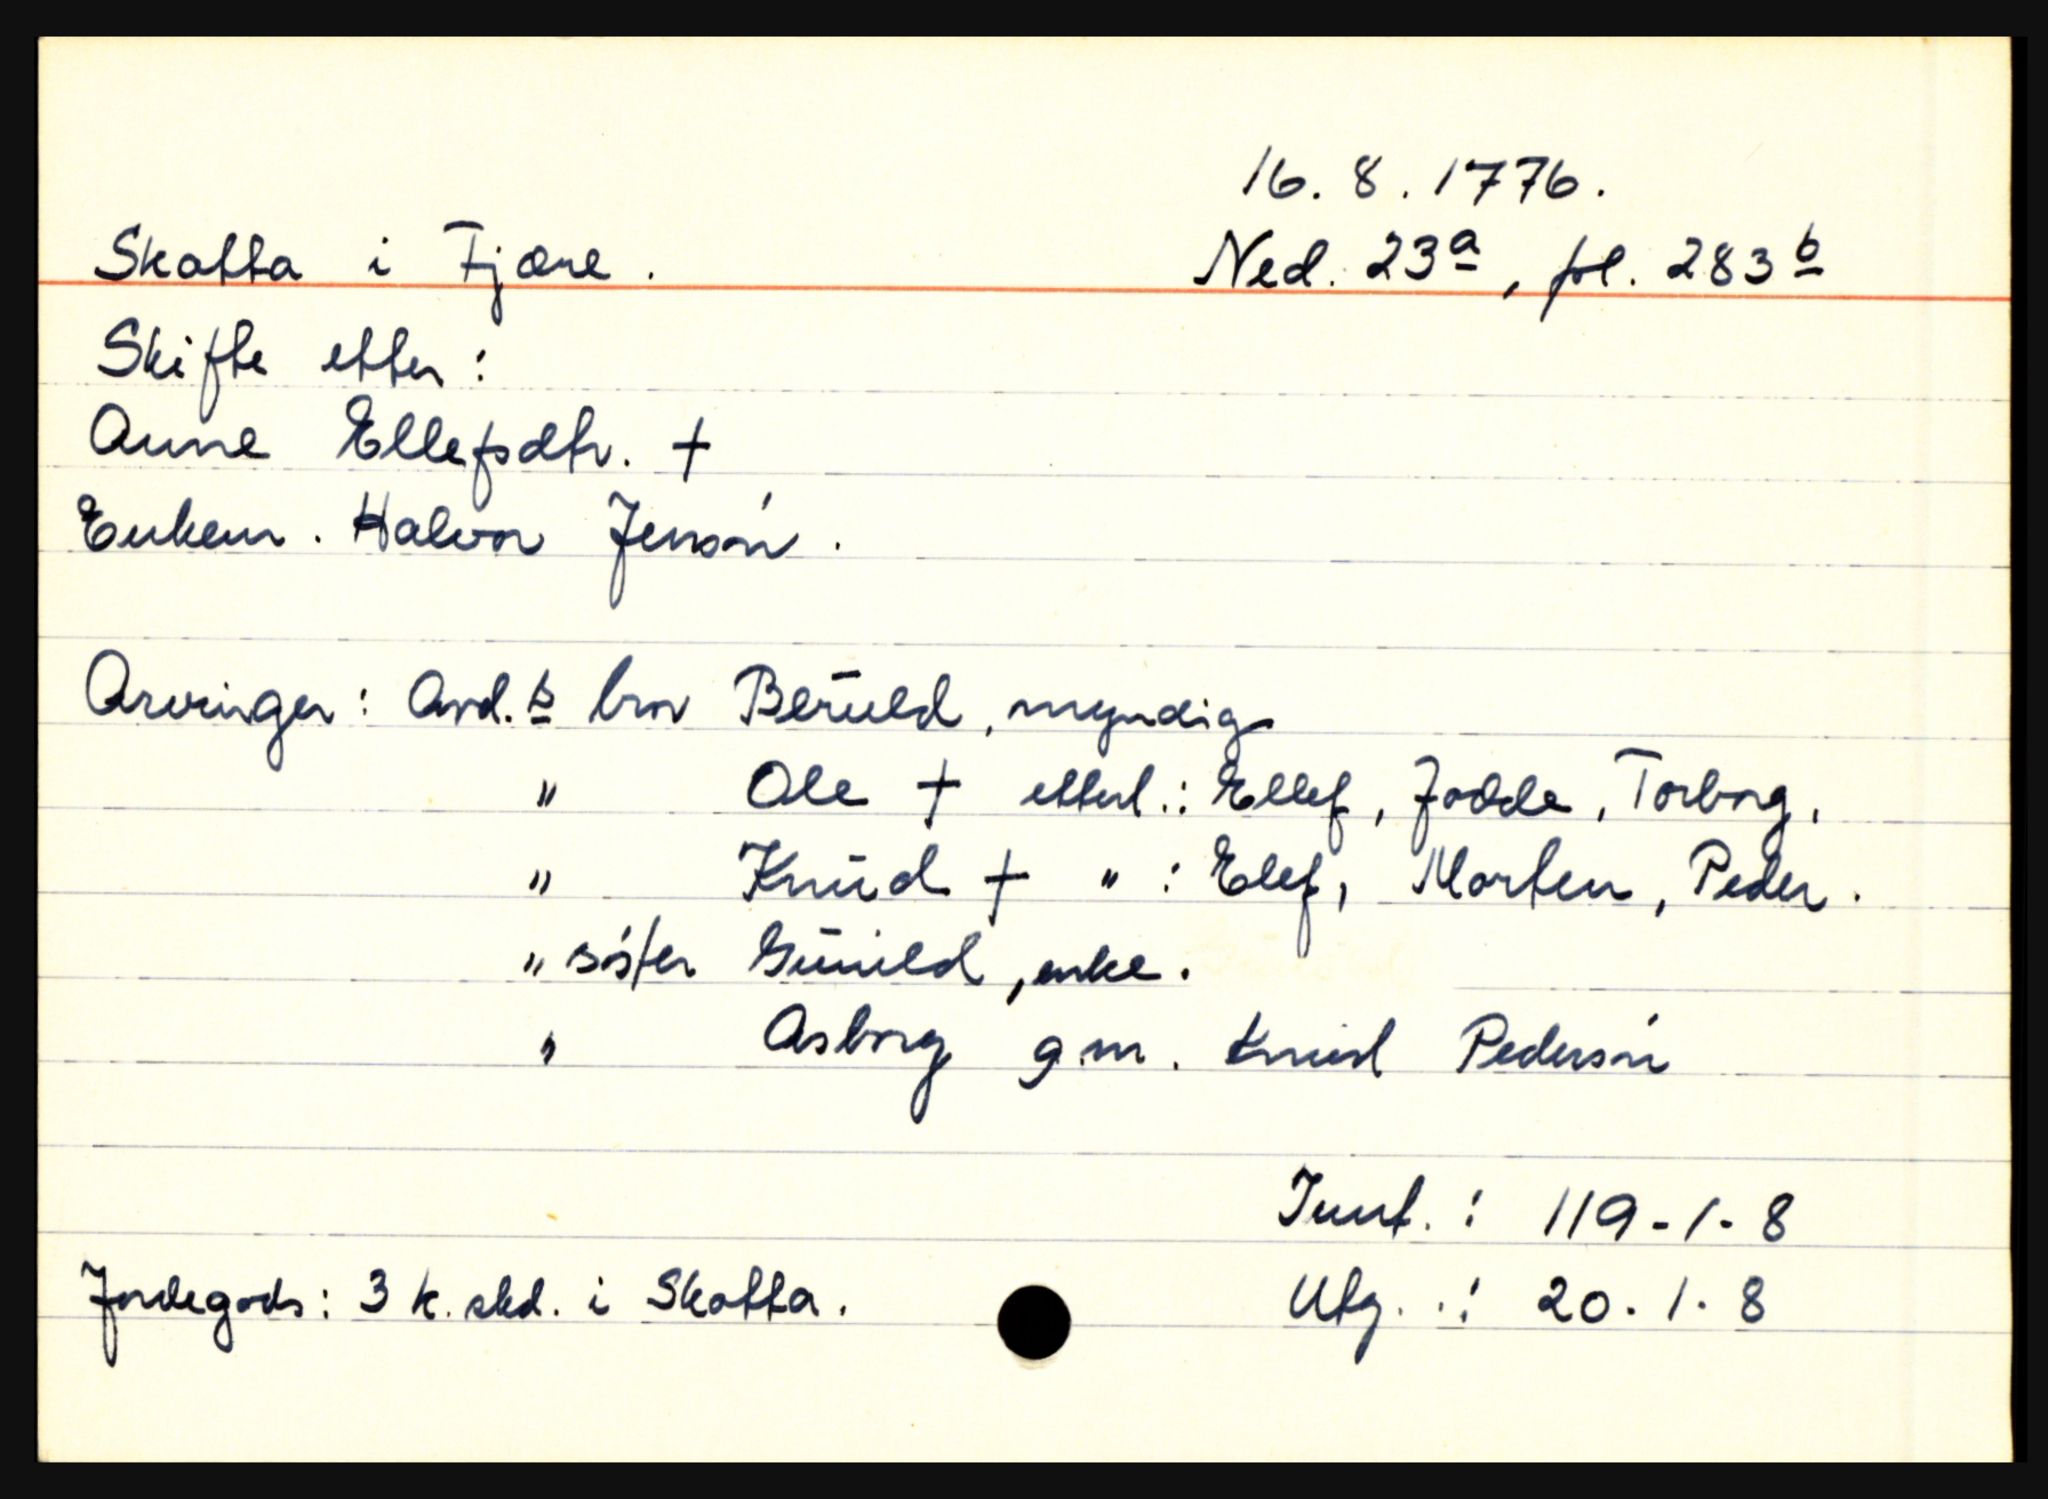 16.8.1776.
Skatta i Fjære. Ned. 23a, fol. 283b
Skifte etter:
Anne Ellefsdtr. †
Enkem. Halvor Jensøn.
Arvinger: Avd.s bror Beruld, myndig
" Ole † etterl.: Ellef, Jodde, Torborg,
" Knud † " : Elef, Morten, Peder.
" søster Gunild, enke.
" Asborg g.m. Knud Pedersøn
Innt.: 119-1-8
Jordegods: 3 k. skd. i Skatta. Utg..: 20.1.8